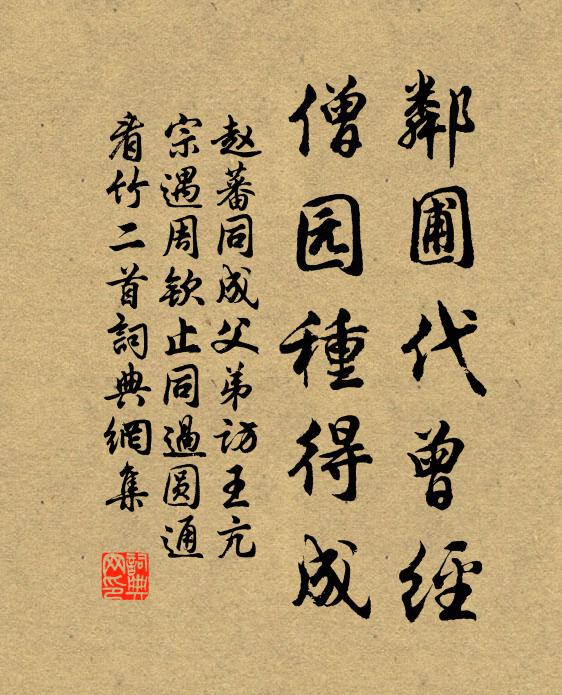 鄰圃代曾經
僧园種得成
赵蕃同成父弟訪王亢
宗遇周钦止同過圆通
看竹二首詞典網集
詞典
网印